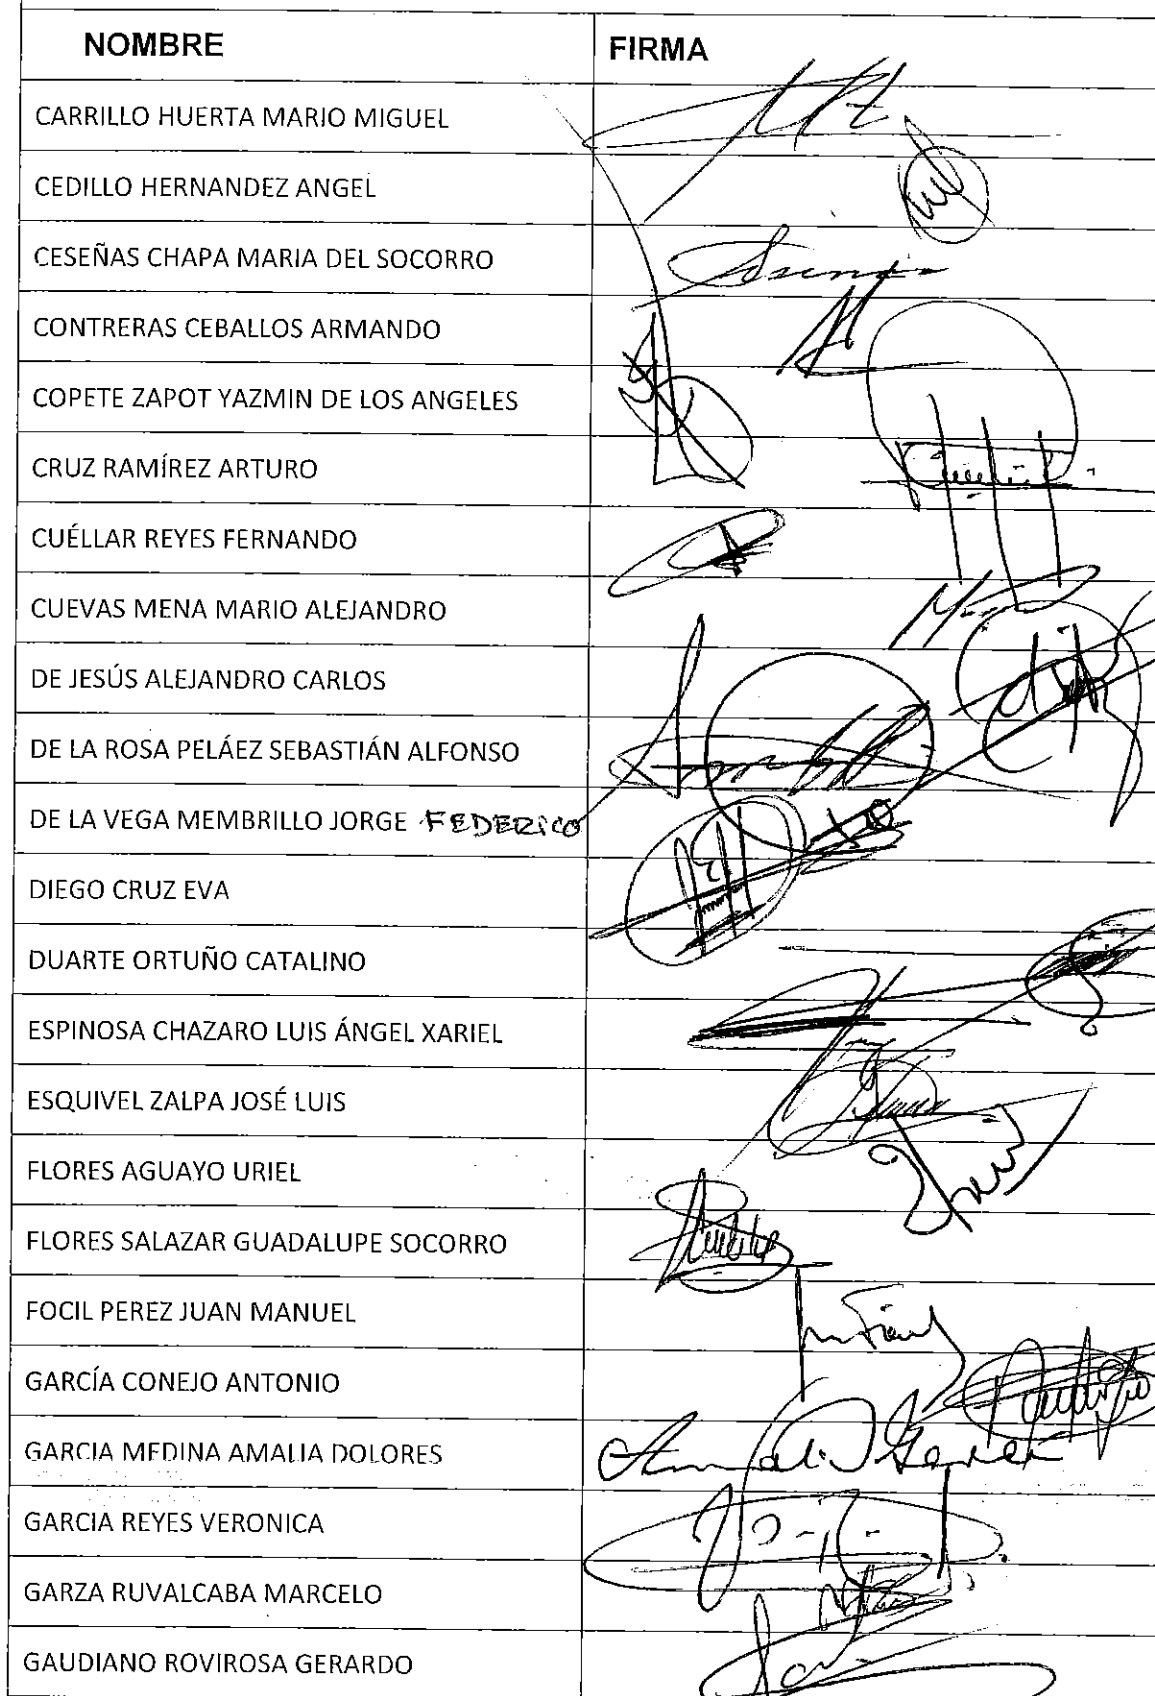 NOMBRE FIRMA
CARRILLO HUERTA MARIO MIGUEL
CEDILLO HERNANDEZ ANGEL
CESEÑAS CHAPA MARIA DEL SOCORRO
CONTRERAS CEBALLOS ARMANDO
COPETE ZAPOT YAZMIN DE LOS ANGELES
CRUZ RAMÍREZ ARTURO
CUÉLLAR REYES FERNANDO
CUEVAS MENA MARIO ALEJANDRO
DE JESÚS ALEJANDRO CARLOS
DE LA ROSA PELÁEZ SEBASTIÁN ALFONSO
DE LA VEGA MEMBRILLO JORGE FEDERICO
DIEGO CRUZ EVA
DUARTE ORTUÑO CATALINO
ESPINOSA CHAZARO LUIS ÁNGEL XARIEL
ESQUIVEL ZALPA JOSÉ LUIS
FLORES AGUAYO URIEL
FLORES SALAZAR GUADALUPE SOCORRO
FOCIL PEREZ JUAN MANUEL
GARCÍA CONEJO ANTONIO
GARCIA MEDINA AMALIA DOLORES
GARCIA REYES VERONICA
GARZA RUVALCABA MARCELO
GAUDIANO ROVIROSA GERARDO